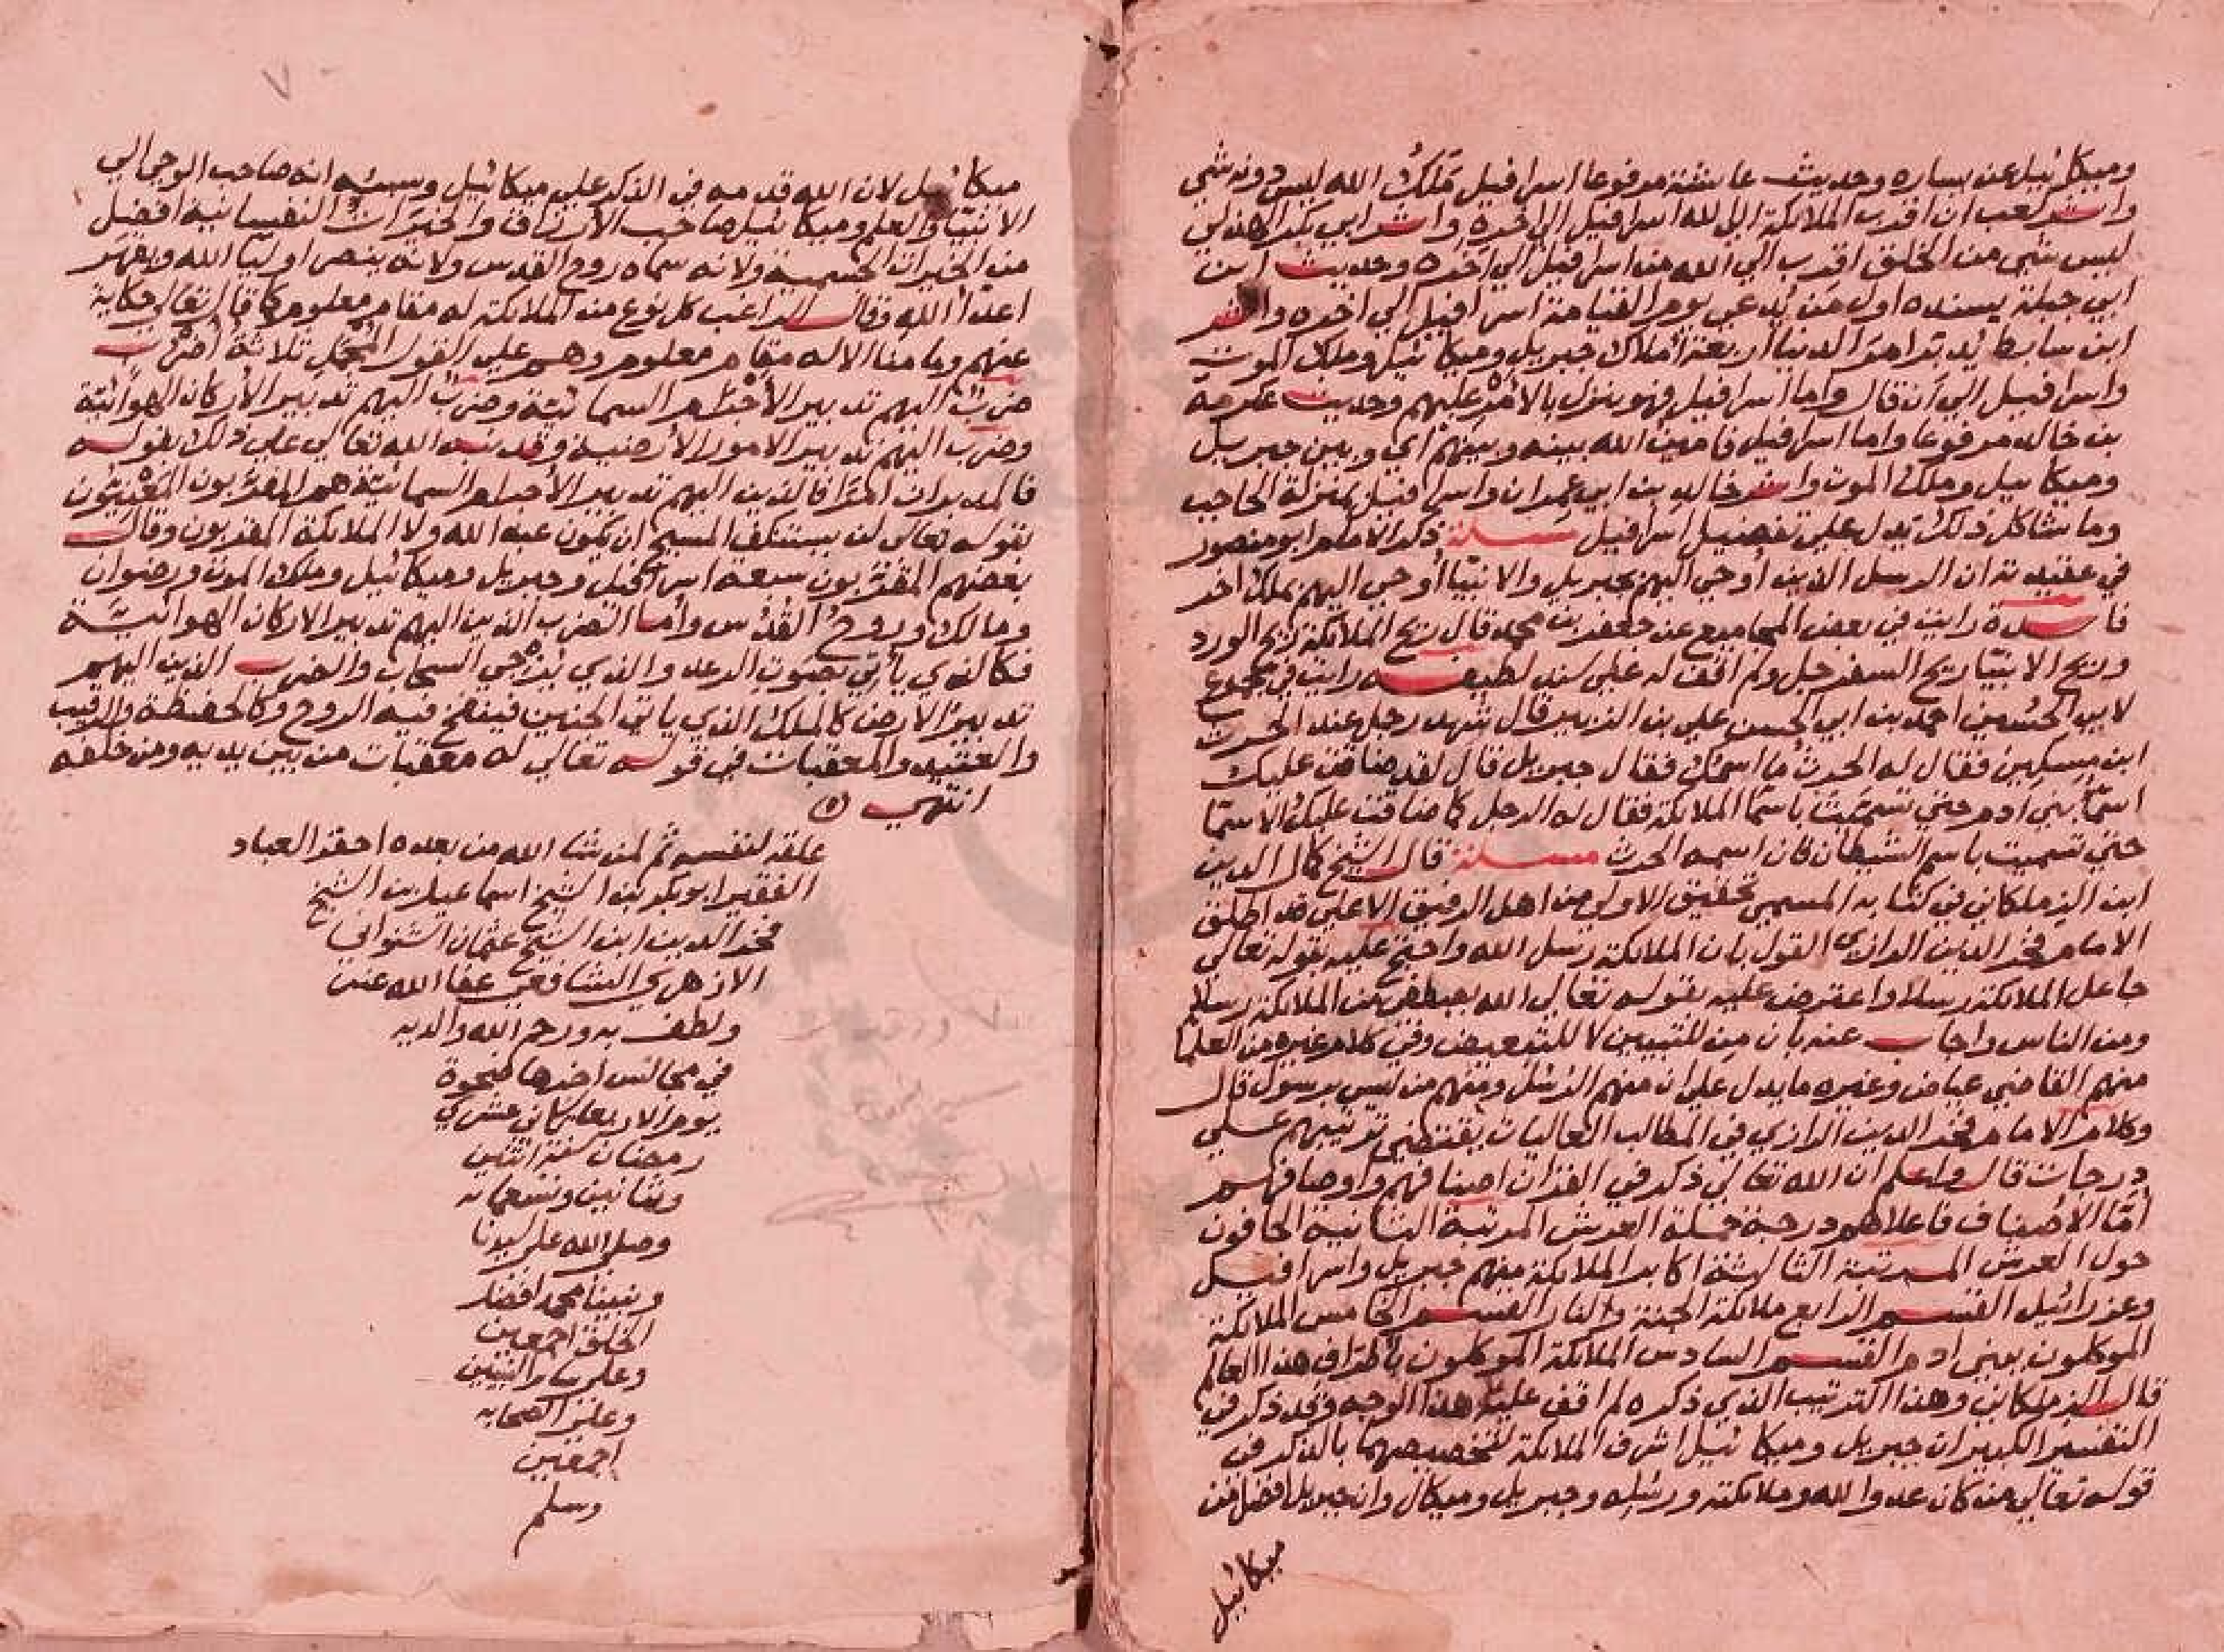 وميكائيل عن يساره وحديث عائشة مرفوعا اسرافيل مَلَكُ الله ليس دونه شي
واثر كعب ان اقرب الملائكة الى لله اسرافيل الى اخره واثر ابي بكر الهذلي
ليس شي من الخلق اقرب الي الله من اسرافيل الي اخره وحديث ابن
ابي جبلة بسنده اول من يدعي يوم القيامة اسرافيل الي اخره واثر
ابن سابط يدبر امر الدنيا اربعة أملاك جبريل وميكائيل وملك الموت
واسرافيل الي أن قال واما اسرافيل فهو ينزل بالأمر عليهم وحديث عكرمة
بن خالد مرفوعا واما اسرافيل فامين الله بينه وبينهم اي وبين جبريل
وميكائيل وملك الموت واثر خالد بن ابي عمران واسرافيل بمنزلة الحاجب
وما شاكل ذلك يدل علي تفضيل اسرافيل مسلة ذكر الامام ابو منصور
في عقيدته ان الرسل الذين أوحي اليهم بجبريل والانبيا أوحي اليهم بملك اخر
فايدة رايت في بعض المجاميع عن جعفر بن محمد قال ريح الملائكة ريح الورد
وريح الانبيا ريح السفرجل ولم اقف له علي سند لطيفه رايت في مجموع
لابي الحسين احمد بن ابي الحسن علي بن الزبير قال شهد رجل عند الحرث
ابن مسكين فقال له الحرث ما اسمك فقال جبريل قال لقد ضاقت عليك
اسمآ بني ادم حتي تسميت باسما الملائكة فقال له الرجل كما ضاقت عليك الاسمآ
حتي تسميت باسم الشيطان فان اسمه الحرث مسلة قال الشيخ كمال الدين
ابن الزملكاني في كتابه المسمي تحقيق الاولي من اهل الرفيق الاعلي قد اطلق
الامام فخر الدين الرازي القول بان الملائكة رسل الله واحتج عليه بقوله تعالي
جاعل الملائكة رسلا واعترض عليه بقوله تعالي الله يصطفي من الملائكة رسلا
ومن الناس واجاب عنه بان من للتبيين لا للتبعيض وفي كلام غيره من العلما
منهم القاضي عياض وغيره ما يدل علي ان منهم الرسل ومنهم من ليس برسول قال
وكلام الامام فخر الدين الرازي في المطالب العاليات يقتضي ترتيبهم علي
درجات قال واعلم ان الله تعالي ذكر في القران اصنافهم واوصافهم
أمّا الأصناف فاعلاهم درجة حملة العرش المرتبة الثانية الحافون
حول العرش المرتبة الثالثة اكابر الملائكة منهم جبريل واسرافيل
وعزرائيل القسم الرابع ملائكة الجنة والنار القسم الخامس الملائكة
الموكلون ببني ادم القسم السادس الملائكة الموكلون بأطراف هذا العالم
قال الزملكاني وهذا الترتيب الذي ذكره لم اقف عليه هذا الوجه وقد ذكر في
التفسير الكبير ان جبريل وميكائيل اشرف الملائكة لتخصيصهما بالذكر في
قوله تعالي من كان عدوا لله وملائكته ورسله وجبريل وميكال وان جبريل افضل من
ميكائيل
٧
ميكائيل لان الله قدمه في الذكر علي ميكائيل وسببه انه صاحب الوحي الي
الانبيا والعلم وميكائيل صاحب الأرزاق والخيرات النفسانية افضل
من الخيرات الجسمية ولانه سماه روح القدس ولانه ينصر اوليا الله ويقهر
اعدآ الله وقال الراغب كل نوع من الملائكة له مقام معلوم كما قال تعالي حكاية
عنهم وما منا الا له مقام معلوم وهم علي القول المجمل ثلاثة أضرب
ضرب اليهم تدبير الأجرام السمائية وضرب اليهم تدبير الأركان الهوائية
وضرب اليهم تدبير الامور الأرضية وقد نبه الله تعالي علي ذلك بقوله
فالمدبرات امرا فالذين اليهم تدبير الأجرام السمائية هم المقربون المعنيون
بقوله تعالي لن يستنكف المسيح ان يكون عبد الله ولا الملائكة المقربون وقال
بعضهم المقربون سبعة اسرافيل وجبريل وميكائيل وملك الموت ورضوان
ومالك وروح القدس وأما الضرب الذين اليهم تدبير الاركان الهوائية
فكالذي يأتي بصوت الرعد والذي يزجي السحاب والضرب الذين اليهم
تدبير الارض كالملك الذي ياتي الجنين فينفخ فيه الروح وكالحفظة والرقيب
والعتيد والمعقبات في قوله تعالي له معقبات من بين يديه ومن خلفه
انتهي
علقه لنفسه ثم لمن شا الله من بعده احقر العباد
الفقير ابو بكر بن الشيخ اسماعيل بن الشيخ
فخر الدين ابن الشيخ عثمان الشنواني
الازهري الشافعي عفا الله عنه
ولطف به ورحم الله والديه
في مجالس اخرها ضحوة
يوم الاربعا ثاني عشري
رمضان سنة اثنين
وثمانين وتسعمايه
وصلى الله على سيدنا
ونبينا محمد افضل
الخلق اجمعين
وعلى سائر النبيين
وعلى الصحابه
اجمعين
وسلم